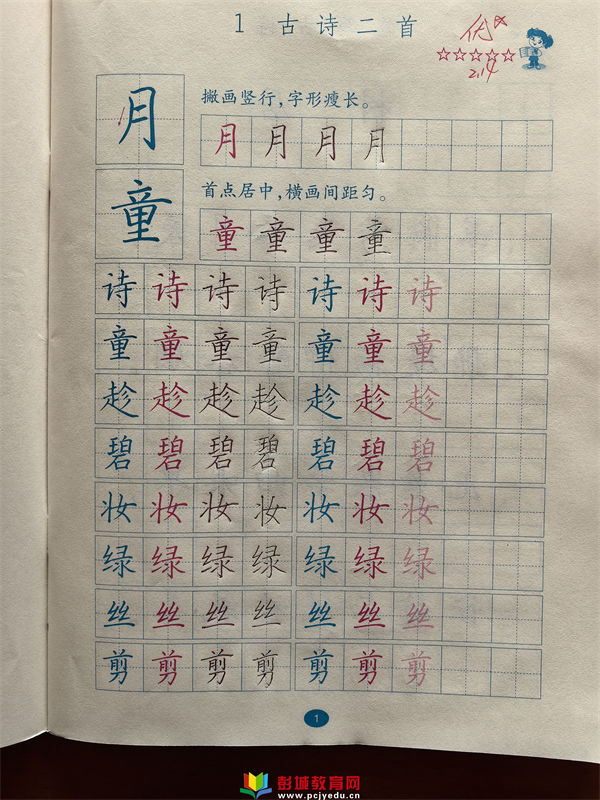 1 古诗二首
优
2.14
月 撇画竖行,字形瘦长。
月月月月
童 首点居中,横画间距匀。
童童童童
诗诗诗诗诗诗诗
童童童童童童童
趁趁趁趁趁趁趁
碧碧碧碧碧碧碧
妆妆妆妆妆妆妆
绿绿绿绿绿绿绿
丝丝丝丝丝丝丝
剪剪剪剪剪剪剪
1
彭城教育网
www.pcjyedu.cn